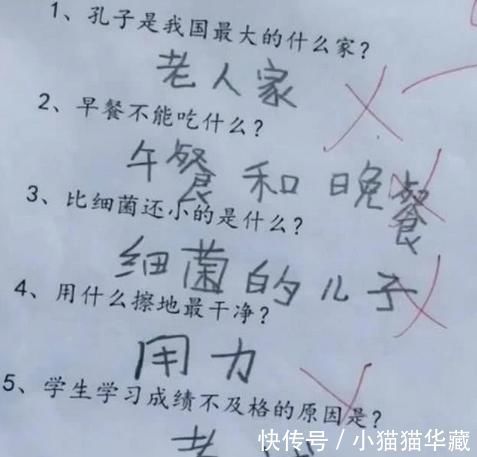 1、孔子是我国最大的什么家?
老人家
2、早餐不能吃什么?
午餐和晚餐
3、比细菌还小的是什么?
细菌的儿子
4、用什么擦地最干净?
用力
5、学生学习成绩不及格的原因是?
老
快传号/小猫猫华藏